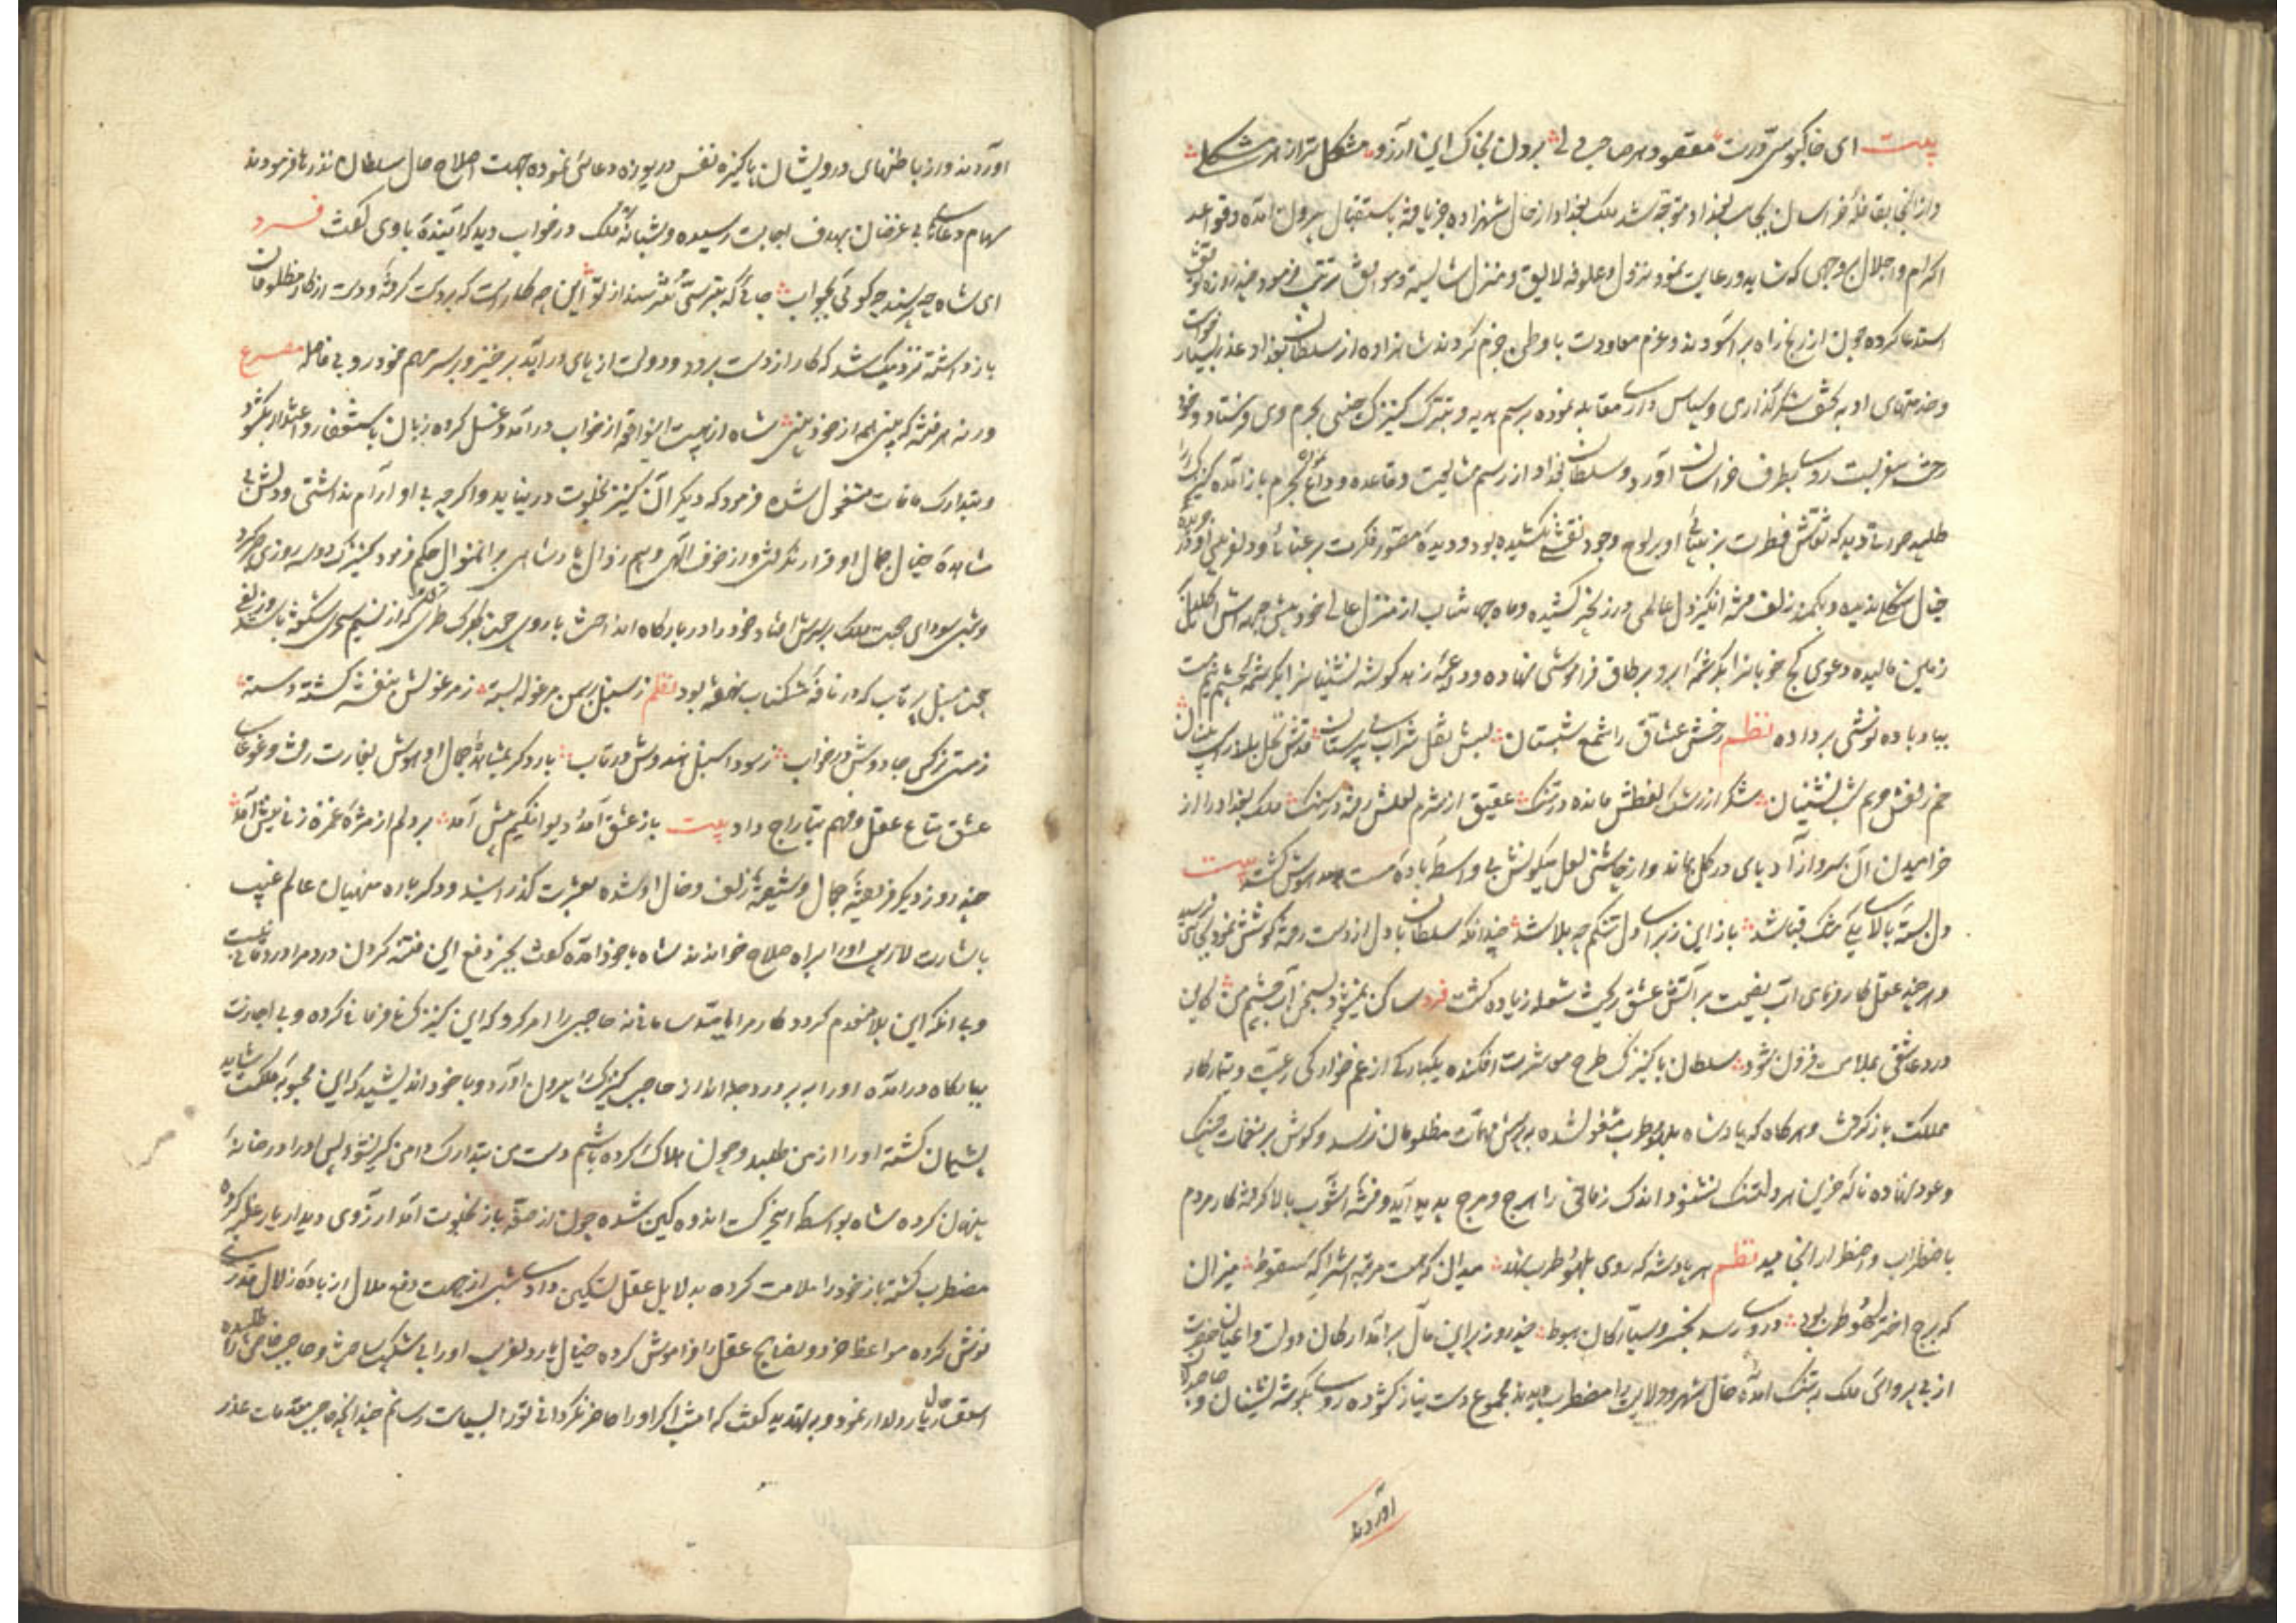 بیت ای خاکبوسی درت مقصود هر صاحب دلی بردن بخاک این آرزو مشکل تر از هر مشکلی
و از آنجا بقافلهٔ خراسان بجانب بغداد متوجه شد ملک بغداد از حال شهزاده خبر یافته باستقبال بیرون آمده و قواعد
اکرام و اجلال بر وجهی که شاید و رعایت نمود و نزول و علوفه لایق و منزل شایسته و موافق مرتب فرمود چند روزه توقف
استدعا کرده چون از رنج راه بر آسودند و عزم معاودت باوطن جزم کردند شاهزاده از سلطان بغداد عذر بسیار خواست
و خدمتهای او به شکرگذاری و سپاس داری مقابله نموده برسم هدیه و تبرک کنیزک چینی بحرم وی فرستاد و خود
رخت سفر بست روی بطرف خراسان آورد و سلطان بغداد از رسم مشایعت و قاعده وداع بحرم باز آمده کنیزک را
طلبید صورتی دید که نقاش فطرت بزیبائی او بر لوح وجود نقشی نکشیده بود و دیدهٔ مصور فکرت برعنائی و دلفریبی او در
خیال شکلی ندیده و بکمند زلف فتنه انگیز دل عالمی در زنجیر کشیده و ماه جهانتاب از منزل عالی خود پیش چهره اش
زمین مالیده دعوی کج خوبانرا بکرشمهٔ ابرو بر طاق فراموشی نهاده و ودیعهٔ زهد گوشه نشینانرا بکرشمهٔ چشم نیم مست
بباد باده نوشی بر داده نظم رخش عشاق را شمع شبستان لبش نقل شراب می پرستان قدش نخل بلا
خم زلفش شب نشینان شکر از رشک لفظش مانده در تنگ عقیق از شرم لعلش رفته در سنگ ملک بغداد را از
خرامیدن آن سرو آزاد پای در گل بماند و از چاشنی لعل میگونش بی واسطهٔ باده مست و مدهوش گشته بیت
دل بستهٔ بالای یکی تنگ قبا شد باز این ز برای دل تنگم چه بلا شد چندانکه سلطان با دل از دست رفته کوشش نمود
و هر چند عقل کارفرمای آب نصیحت بر آتش عشق ریخت شعله زیاده گشت فرد ساکن نمیشود بسخن آب چشم من کاین
درد عاشقی بملامت فزون شود سلطان با کنیزک طرح معاشرت افکنده یکبارگی از غم خوارگی رعیت و تیمار کار
مملکت باز گرفت و هر گاه که پادشاه بلهو و طرب مشغول شده به پرسش مهمات مظلومان نرسد و گوش بر نغمات چنگ
و عود نهاده نالهٔ حزین هر دلتنگ نشنود اندک زمانی را هرج و مرج پدید آید و فتنه و آشوب بالا گرفته کار مردم
باضطراب و اضطرار انجامید نظم هر پادشه که روی بلهو و طرب نهد میدان که هست مرتبه اش را گه سقوط میزان
که برج اختر لهو و طرب بود در وی رسد بخسرو سیارگان هبوط چند روز برین حال برآمد ارکان دولت و اعیان حضرت
از بی پروائی ملک به تنگ آمده حال شهر و ولایت را مضطرب دیدند مجموع دست نیاز گشوده روی بگوشه نشینان و
آوردند
آوردند و از باطنهای درویشان پاکیزه نفس دریوزه دعائی نموده جهت اصلاح حال سلطان نذرها فرمودند
سهام دعای بی غرضان بهدف اجابت رسیده و شبانه ملک در خواب دید که آینده با وی گفت فرد
ای شاه چه پرسند چه گوئی بجواب جائی که بترسی نترسند از تو این چه کار است که بر دست گرفته و دست از کار مظلومان
باز داشته نزدیک شد که کار از دست برود و دولت از پای در آید برخیز و بر سر مهم خود رو بی فاصله مصرع
ور نه هر فتنه که بینی همه از خود بینی شاه از هیبت این واقعه از خواب در آمد و غسل کرده زبان باستغفار و اعتذار بگشود
و بتدارک مافات مشغول شده فرمود که دیگر آن کنیز بخلوت در نیاید و اگر چه بی او آرام نداشتی و دلش بی
مشاهدهٔ خیال جمال او قرار نگرفتی و از خوف الهی و بیم زوال پادشاهی برینمنوال حکم فرمود کنیزک دو سه روزی صبر کرد
و شبی سودای صحبت ملک بر سرش افتاد خود را در بارگاه انداخت با روی چون گلبرگ طری که از نسیم سحری شکفته باشد و زلفی
چون سنبل پر تاب که در نافهٔ مشکناب نهفته بود نظم ز سنبل بر سمن مرغوله بسته ز مرغولش بنفشه گشته دسته
ز مستی نرگس جادوش در خواب ز سودا سنبل هندوش در تاب بار دگر بمشاهدهٔ جمال او هوش بغارت رفت و غوغای
عشق متاع عقل و فهم بتاراج داد بیت باز عشق آمد و دیوانگیم پیش آمد بر دلم از مژهٔ غمزه زنان نیش آمد
چند روز دیگر فریفتهٔ جمال و شیفتهٔ زلف و خال او شده بعشرت گذرانیده و دگر باره منهیان عالم غیب
باشارت لاریب او را براه صلاح خواندند شاه با خود آمده گفت بجز دفع این فتنه کردن درد مرا دوائی نیست
و بی آنکه این بلا منهدم گردد کار مرا سامانی نه حاجبی را امر کرد که این کنیزک نافرمانی کرده و بی اجازت
ببارگاه در آمده او را ببر و در دجله انداز حاجب کنیزک را بیرون آورد و با خود اندیشید که این محبوبه ملکست شاید
پشیمان گشته او را از من طلبد و چون هلاک کرده باشم دست من بتدارک دامن گیر نشود پس او را در خانهٔ
پنهان کرده شاه بواسطهٔ این حرکت اندوهگین شده چون از صفهٔ بار بخلوت آمد آرزوی دیدار یار غلبه کرده
مضطرب گشته باز خود را ملامت کرده به دلایل عقل تسکین داد شبی از جهت دفع ملال از بادهٔ زلال قدری
نوش کرده مواعظ خرد و نصایح عقل را فراموش کرده خیال یار دلفریب او را بی شکیب ساخت و حاجب خاص را طلبیده
استفسار حال یار دلدار نمود و به تهدید گفت که امشب اگر او را حاضر نگردانی ترا بسیاست رسانم چندانکه حاجب مقدمات عذر